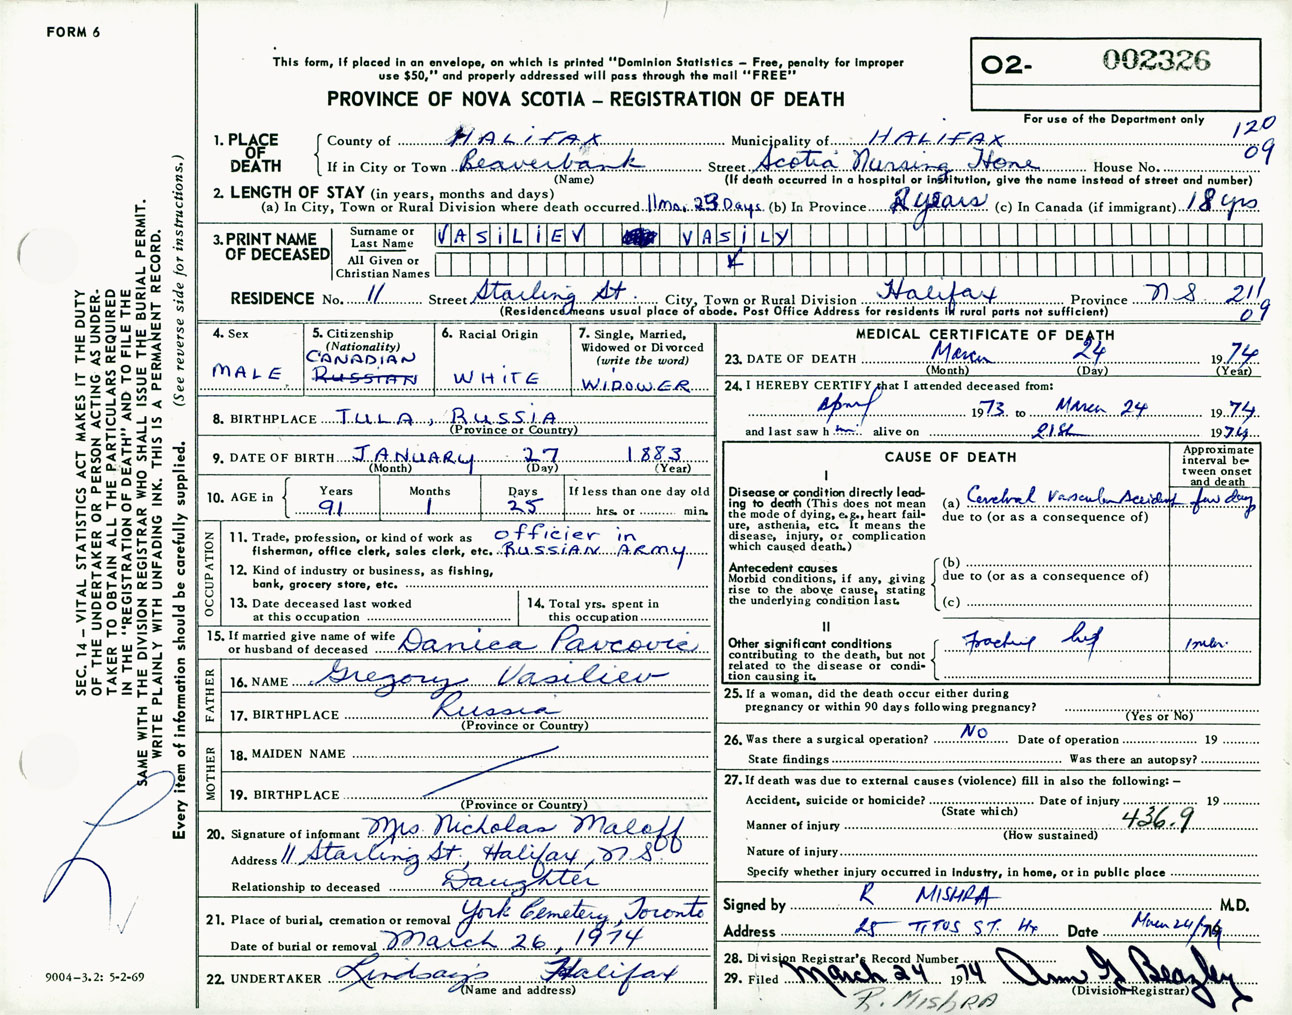 FORM 6
This form, if placed in an envelope, on which is printed "Dominion Statistics – Free, penalty for improper
use $50," and properly addressed will pass through the mail "FREE"
PROVINCE OF NOVA SCOTIA – REGISTRATION OF DEATH
O2- 002326
For use of the Department only
120
09
1. PLACE OF DEATH
County of HALIFAX Municipality of HALIFAX
If in City or Town Beaverbank Street Scotia Nursing Home House No.
(Name) (If death occurred in a hospital or institution, give the name instead of street and number)
2. LENGTH OF STAY (in years, months and days)
(a) In City, Town or Rural Division where death occurred 11 mo, 23 Days (b) In Province 8 years (c) In Canada (if immigrant) 18 yrs
3. PRINT NAME OF DECEASED
Surname or Last Name VASILIEV VASILY
All Given or Christian Names
RESIDENCE No. 11 Street Starling St. City, Town or Rural Division Halifax Province N S 211
(Residence means usual place of abode. Post Office Address for residents in rural parts not sufficient) 09
4. Sex
MALE
5. Citizenship
(Nationality)
CANADIAN
RUSSIAN
6. Racial Origin
WHITE
7. Single, Married,
Widowed or Divorced
(write the word)
WIDOWER
8. BIRTHPLACE TULA, RUSSIA
(Province or Country)
9. DATE OF BIRTH JANUARY 27 1883
(Month) (Day) (Year)
10. AGE in
Years Months Days If less than one day old
91 1 25 hrs. or min.
OCCUPATION
11. Trade, profession, or kind of work as officier in
fisherman, office clerk, sales clerk, etc. RUSSIAN ARMY
12. Kind of industry or business, as fishing,
bank, grocery store, etc.
13. Date deceased last worked
at this occupation
14. Total yrs. spent in
this occupation
15. If married give name of wife
or husband of deceased Danica Pavcovic
FATHER
16. NAME Gregory Vasiliev
17. BIRTHPLACE Russia
(Province or Country)
MOTHER
18. MAIDEN NAME
19. BIRTHPLACE
(Province or Country)
20. Signature of informant Mrs. Nicholas Maloff
Address 11 Starling St., Halifax, N S.
Relationship to deceased Daughter
21. Place of burial, cremation or removal York Cemetery, Toronto
Date of burial or removal March 26, 1974
22. UNDERTAKER Lindsay's Halifax
(Name and address)
MEDICAL CERTIFICATE OF DEATH
23. DATE OF DEATH March 24 1974
(Month) (Day) (Year)
24. I HEREBY CERTIFY that I attended deceased from:
April 1973 to March 24 1974
and last saw him alive on 21st 1974
CAUSE OF DEATH
Approximate
interval be-
tween onset
and death
I
Disease or condition directly lead-
ing to death (This does not mean
the mode of dying, e.g., heart fail-
ure, asthenia, etc. It means the
disease, injury, or complication
which caused death.)
(a) Cerebral Vascular Accident few days
due to (or as a consequence of)
Antecedent causes
Morbid conditions, if any, giving
rise to the above cause, stating
the underlying condition last.
(b)
due to (or as a consequence of)
(c)
II
Other significant conditions
contributing to the death, but not
related to the disease or condi-
tion causing it.
hip
25. If a woman, did the death occur either during
pregnancy or within 90 days following pregnancy?
(Yes or No)
26. Was there a surgical operation? No Date of operation 19
State findings Was there an autopsy?
27. If death was due to external causes (violence) fill in also the following: –
Accident, suicide or homicide? Date of injury 19
(State which)
Manner of injury 436.9
(How sustained)
Nature of injury
Specify whether injury occurred in Industry, in home, or in public place
Signed by R MISHRA M.D.
Address 25 TITUS ST. Hx Date March 24/74
28. Division Registrar's Record Number
29. Filed March 24 1974 Ann G Beazley
(Division Registrar)
R. MISHRA
SEC. 14 – VITAL STATISTICS ACT MAKES IT THE DUTY
OF THE UNDERTAKER OR PERSON ACTING AS UNDER-
TAKER TO OBTAIN ALL THE PARTICULARS REQUIRED
IN THE "REGISTRATION OF DEATH" AND TO FILE THE
SAME WITH THE DIVISION REGISTRAR WHO SHALL ISSUE THE BURIAL PERMIT.
WRITE PLAINLY WITH UNFADING INK. THIS IS A PERMANENT RECORD.
Every item of information should be carefully supplied. (See reverse side for instructions.)
9004-3.2: 5-2-69